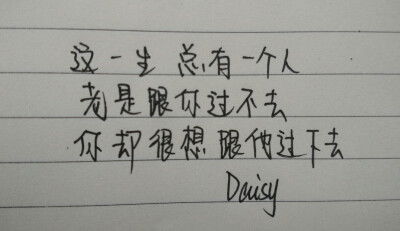 这一生 总有一个人
老是跟你过不去
你却很想跟他过下去
Daisy